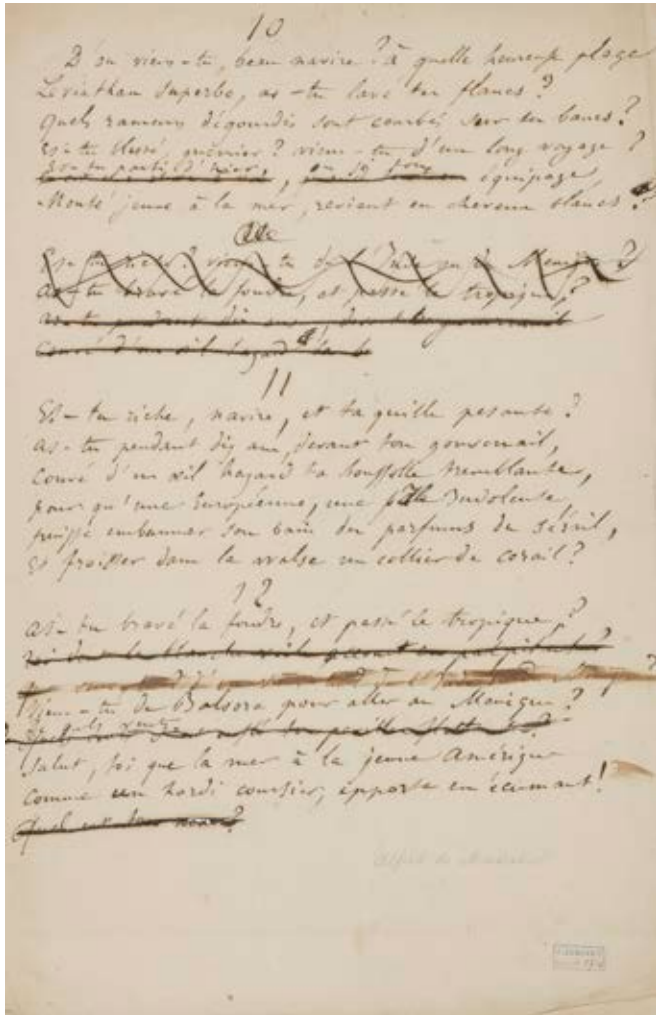 10
D'où viens-tu, beau navire ? à quelle heureuse plage
Léviathan superbe, as-tu lavé tes flancs ?
Quels rameurs dégourdis sont courbés sur tes bancs ?
Es-tu blessé, guerrier ? viens-tu d'un long voyage ?
Es-tu parti d'hier, équipage
Monté jeune à la mer, revient en cheveux blancs ?
Es-tu riche ? viens-tu de l'Inde ou du Mexique ?
As-tu bravé la foudre, et passé le tropique ?
As-tu pendant dix ans, devant ton gouvernail
couvé d'un œil hagard ta b
11
Es-tu riche, navire, et ta quille pesante ?
As-tu pendant dix ans, devant ton gouvernail,
Couvé d'un œil hagard ta boussolle tremblante,
pour qu'une Européenne, une pâle Indolente,
puisse embaumer son bain des parfums du sérail,
Et froisser dans la valse un collier de corail ?
12
As-tu bravé la foudre, et passé le tropique ?
toi dont la blanche voile
Viens-tu de Balsora pour aller au Mexique ?
Salut, toi que la mer à la jeune Amérique
Comme un hardi coursier, apporte en écumant !
Quel est ton nom ?
Alfred de Musset